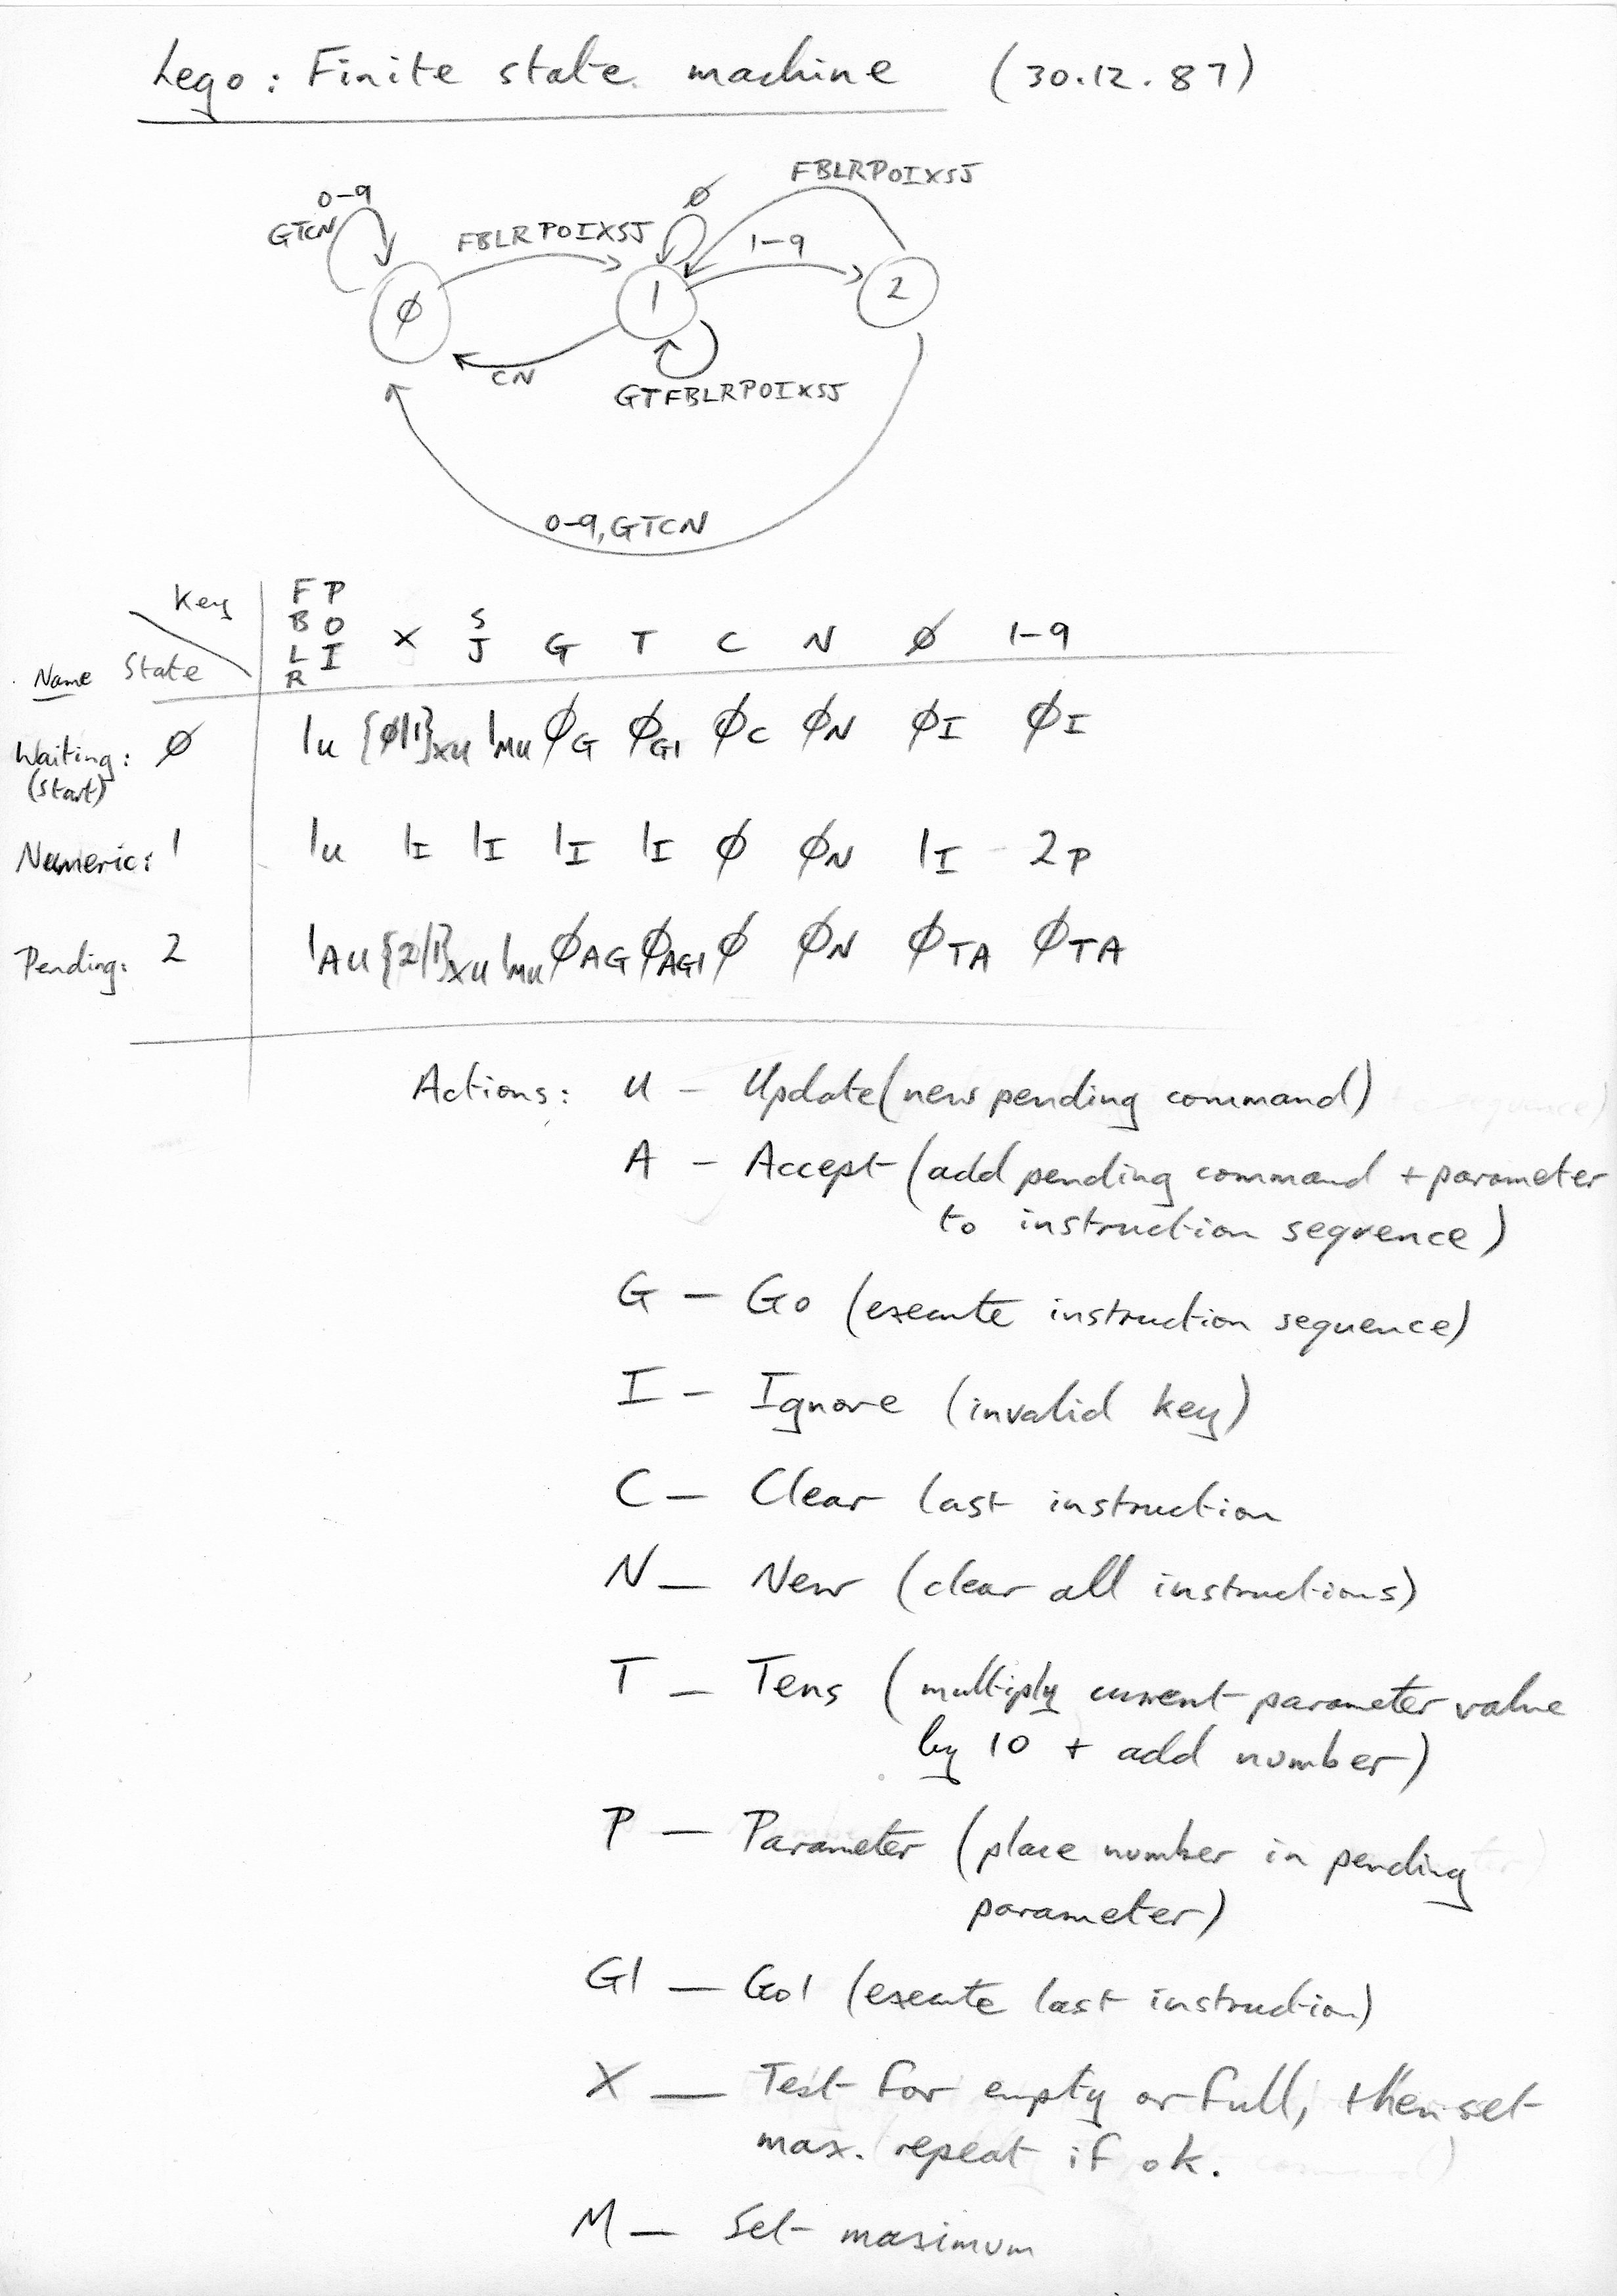 Lego: Finite state machine (30.12.87)
FBLRPOIXSJ
0-9
GTCN
FBLRPOIXSJ
Ø
1-9
Ø
1
2
CN
GTFBLRPOIXSJ
0-9, GTCN
Key
F P
B O
L I
R
X
S
J
G T C N Ø 1-9
Name State
Waiting: Ø 1U {Ø|1}XU 1MU ØG ØG1 ØC ØN ØI ØI
(Start)
Numeric: 1 1U 1I 1I 1I 1I Ø ØN 1I 2P
Pending: 2 1AU {2|1}XU 1MU ØAG ØAG1 Ø ØN ØTA ØTA
Actions: U - Update (new pending command)
A - Accept (add pending command + parameter
to instruction sequence)
G - Go (execute instruction sequence)
I - Ignore (invalid key)
C - Clear last instruction
N - New (clear all instructions)
T - Tens (multiply current parameter value
by 10 + add number)
P - Parameter (place number in pending
parameter)
G1 - Go1 (execute last instruction)
X - Test for empty or full, then set
max. repeat if ok.
M - Set maximum